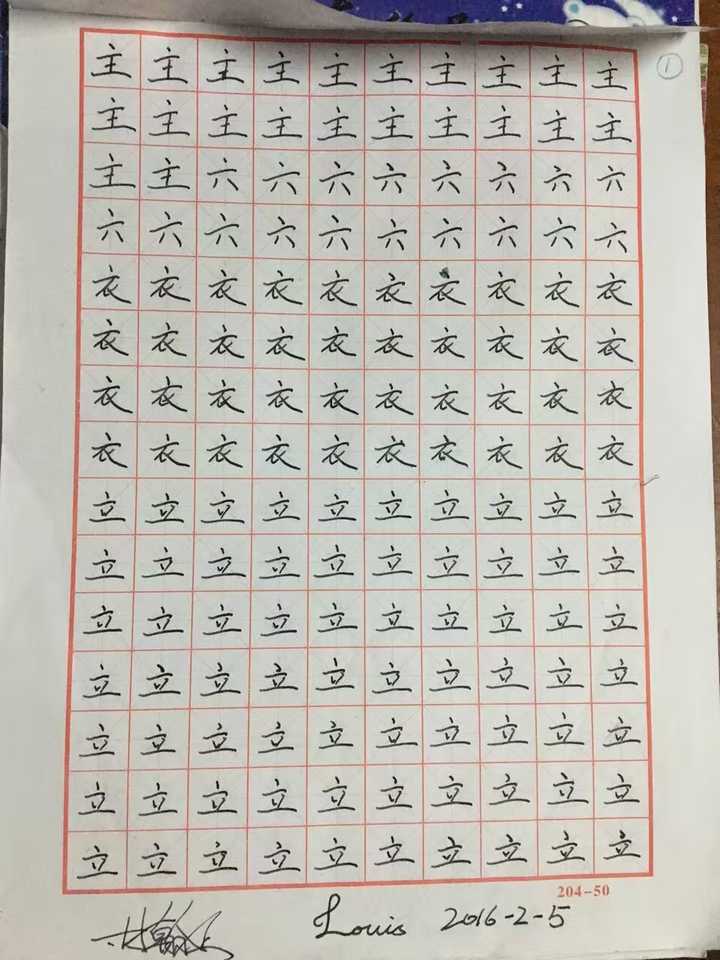 ①
主主主主主主主主主主
主主主主主主主主主主
主主六六六六六六六六
六六六六六六六六六六
衣衣衣衣衣衣衣衣衣衣
衣衣衣衣衣衣衣衣衣衣
衣衣衣衣衣衣衣衣衣衣
衣衣衣衣衣衣衣衣衣衣
立立立立立立立立立立
立立立立立立立立立立
立立立立立立立立立立
立立立立立立立立立立
立立立立立立立立立立
立立立立立立立立立立
立立立立立立立立立立
204-50
Louis 2016-2-5